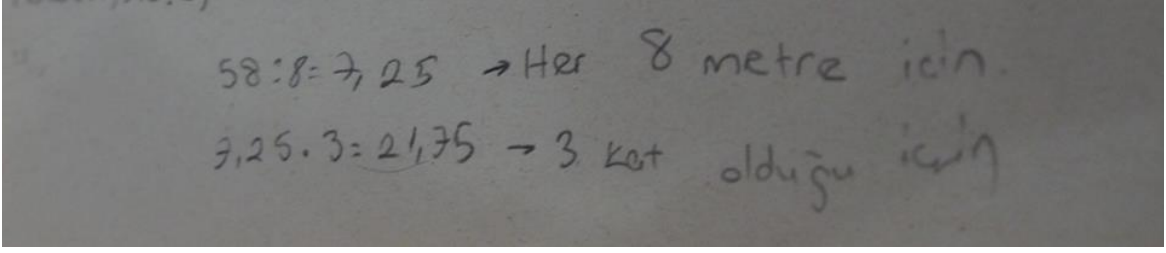 58:8=7,25 → Her 8 metre için.
7,25.3=21,75 → 3 kat olduğu için